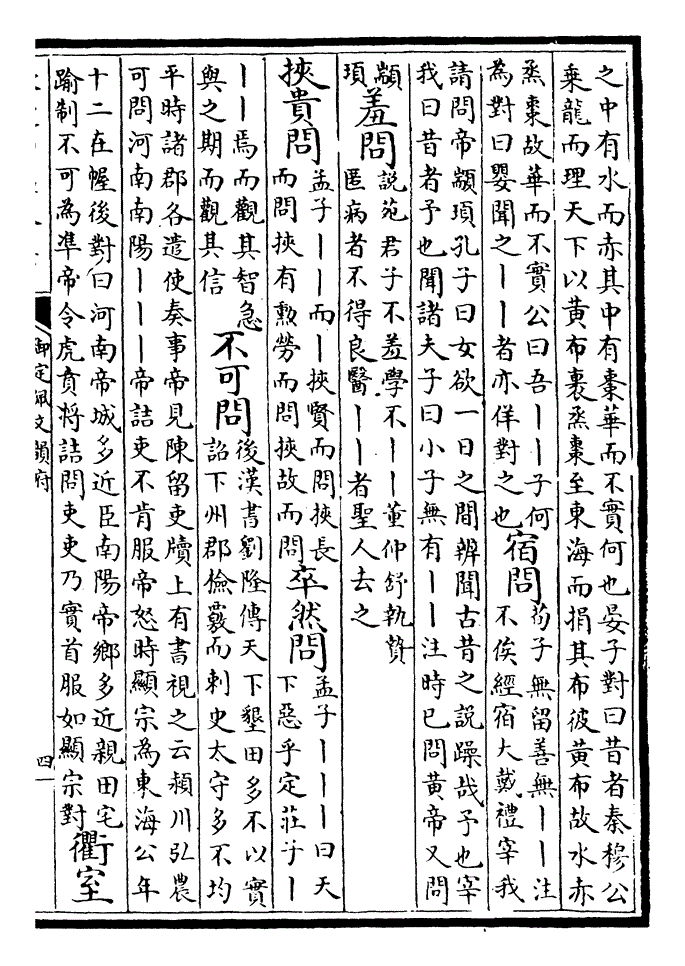 之中有水而赤其中有棗華而不實何也晏子對曰昔者秦穆公
乘龍而理天下以黃布裹烝棗至東海而捐其布彼黃布故水赤
烝棗故華而不實公曰吾丨丨子何
為對曰嬰聞之丨丨者亦佯對之也
宿問
荀子無留善無丨丨注
不俟經宿大戴禮宰我
請問帝顓頊孔子曰女欲一日之間辨聞古昔之說躁哉予也宰
我曰昔者予也聞諸夫子曰小子無有丨丨注時已問黃帝又問
顓
頊
羞問
說苑君子不羞學不丨丨董仲舒執贄
匿病者不得良醫丨丨者聖人去之
挾貴問
孟子丨丨而丨挾賢而問挾長
而問挾有勲勞而問挾故而問
卒然問
孟子丨丨丨曰天
下惡乎定莊子丨
丨丨焉而觀其智急
與之期而觀其信
不可問
後漢書劉隆傳天下墾田多不以實
詔下州郡檢覈而刺史太守多不均
平時諸郡各遣使奏事帝見陳留吏牘上有書視之云潁川弘農
可問河南南陽丨丨丨帝詰吏不肯服帝怒時顯宗為東海公年
十二在幄後對曰河南帝城多近臣南陽帝鄉多近親田宅
踰制不可為準帝令虎賁將詰問吏吏乃實首服如顯宗對
衢室
御定佩文韻府
四